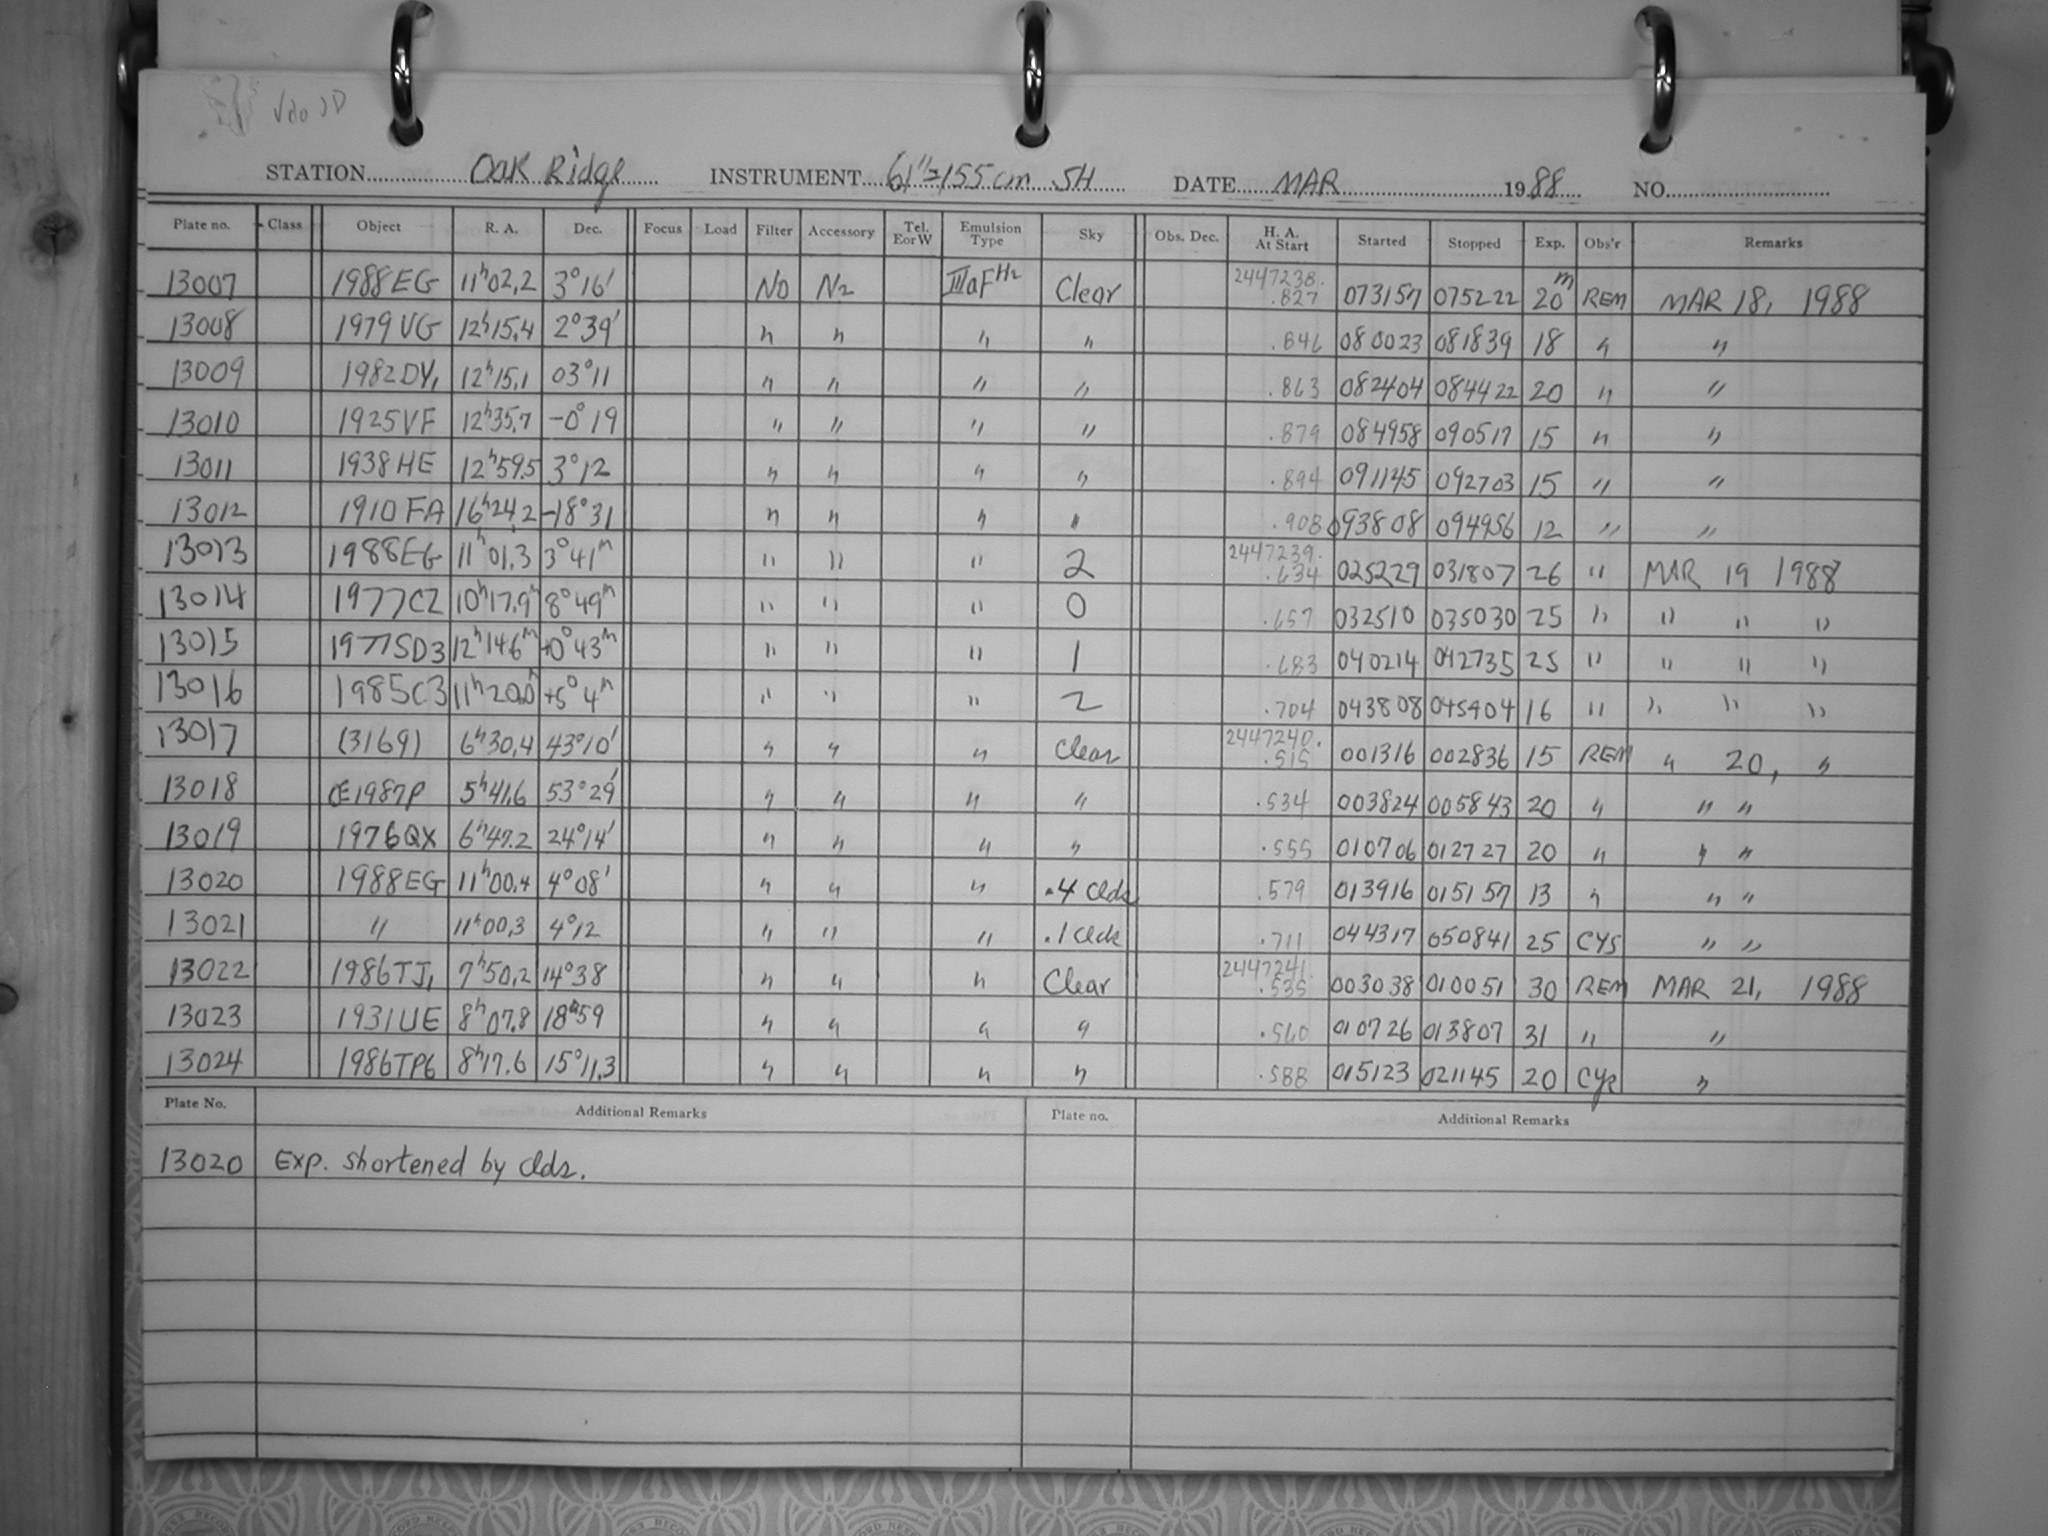 STATION Oak Ridge INSTRUMENT 61"=155cm SH DATE MAR 1988 NO.
Plate no. Class Object R. A. Dec. Focus Load Filter Accessory Tel. E or W Emulsion Type Sky Obs. Dec. H. A. At Start Started Stopped Exp. Obs'r Remarks
13007 1988EG 11h02.2 3°16' No N2 IIIaF H2 Clear 2447238. .827 073157 075222 20m REM MAR 18, 1988
13008 1979VG 12h15.4 2°39' " " " " .846 080023 081839 18 " "
13009 1982DY1 12h15.1 03°11 " " " " .863 082404 084422 20 " "
13010 1925VF 12h35.7 -0°19 " " " " .879 084958 090517 15 " "
13011 1938HE 12h59.5 3°12 " " " " .894 091145 092703 15 " "
13012 1910FA 16h24.2 -18°31 " " " " .908 093808 094956 12 " "
13013 1988EG 11h01.3 3°41m " " " 2 2447239. .634 025229 031807 26 " MAR 19 1988
13014 1977CZ 10h17.9m 8°49m " " " 0 .657 032510 035030 25 " " " "
13015 1977SD3 12h146m +0°43m " " " 1 .683 040214 042735 25 " " " "
13016 1985C3 11h20.0m +5°4m " " " 2 .704 043808 045404 16 " " " "
13017 (3169) 6h30.4 43°10' " " " Clear 2447240. .515 001316 002836 15 REM " 20, "
13018 1987P 5h41.6 53°29' " " " " .534 003824 005843 20 " " "
13019 1976QX 6h47.2 24°14' " " " " .555 010706 012727 20 " " "
13020 1988EG 11h00.4 4°08' " " " .4 Clds .579 013916 015157 13 " " "
13021 " 11h00.3 4°12 " " " .1 Clds .711 044317 050841 25 CYS " "
13022 1986TJ1 7h50.2 14°38 " " " Clear 2447241. .535 003038 010051 30 REM MAR 21, 1988
13023 1931UE 8h07.8 18°59 " " " " .560 010726 013807 31 " "
13024 1986TP6 8h17.6 15°11.3 " " " " .588 015123 021145 20 "
Plate No. Additional Remarks Plate no. Additional Remarks
13020 Exp. shortened by clds.